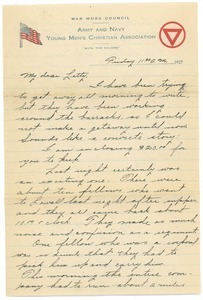 WAR WORK COUNCIL
ARMY AND NAVY
YOUNG MEN'S CHRISTIAN ASSOCIATION
"WITH THE COLORS"
Friday 11 191
My dear
I have been trying
to get away all morning to write
but they have been working
around the barracks so I could
not make a getaway until now
Sounds like a convict's story.
I am enclosing $25.00 for
you to keep.
Last night certainly was
an exciting one. There were
about ten fellows who went
to Lowell last night after supper
and they all came back about
11:30 o'clock. They made as much
noise and confusion as a regiment.
One fellow who was a corporal
was so drunk that they had to
pick him up and carry him.
This morning the entire com-
pany had to run about 2 miles